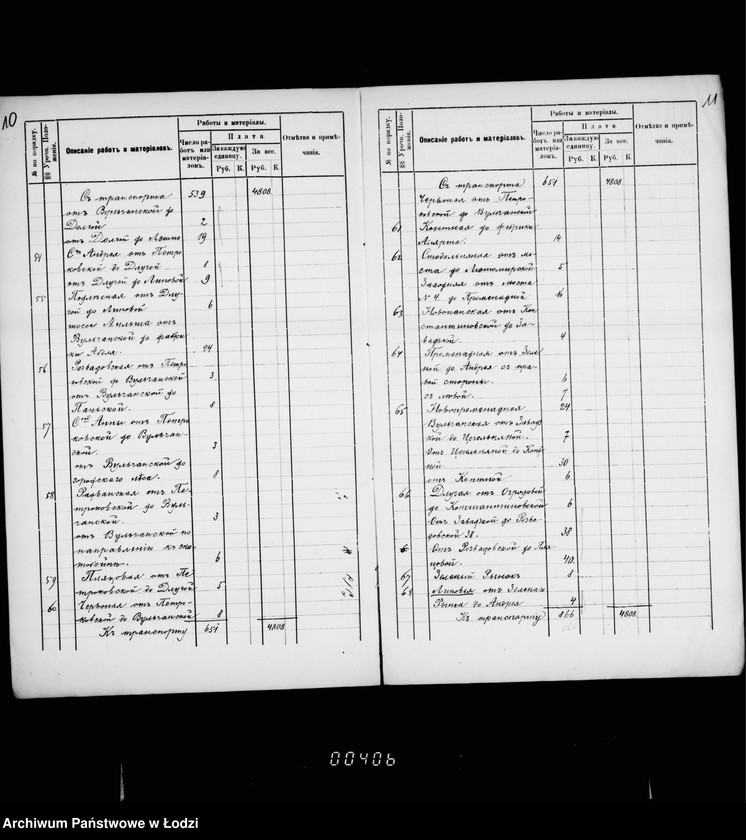 10
№ по порядку.
§§ Урочн. Поло-
женія.
Описаніе работъ и матеріаловъ.
Работы и матеріалы.
Число ра-
ботъ или
матеріа-
ловъ.
Плата
За каждую
единицу.
За все.
Руб. К. Руб. К.
Отмѣтка и примѣ-
чанія.
Съ транспорта 539 4808
отъ Вульчанской до
Долгой 2
отъ Долгой до 19
54 Андрея отъ Петро
ковской до Длугой 8
отъ Длугой до Липовой 9
55 отъ Длу-
гой до Липовой 6
шоссе Мильша отъ
Вульчанской до фабри-
ки Абеля. 24
56 Розвадовская отъ Петро
ковской до Вульчанской 3
отъ Вульчанской до
Паньской. 8
57 Анны отъ Петро
ковской до Вульчан-
ской. 3
отъ Вульчанской до
городского лѣса. 8
58 Радванская отъ Пе-
троковской до Вуль-
чанской. 3
отъ Вульчанской по
направленію къ ско
6
59 отъ Пе-
троковской до Длугой 5
60 Червоная отъ Петро-
ковской до Вульчанской 8
Къ транспорту 651 4808
11
№ по порядку.
§§ Урочн. Поло-
женія.
Описаніе работъ и матеріаловъ.
Работы и матеріалы.
Число ра-
ботъ или
матеріа-
ловъ.
Плата
За каждую
единицу.
За все.
Руб. К. Руб. К.
Отмѣтка и примѣ-
чанія.
Съ транспорта 651 4808
Червоная отъ Петро-
ковской до Вульчанской
61 Контная до фабрики
14
62 Стодольняная отъ мо-
ста до Лютомирской 5
Заходняя отъ моста
№ 4. до Променадной 6
63 Новопанская отъ Кон
стантиновской до За-
вадкой. 4
64 Променадная отъ Зеле
ной до Андрея съ пра-
вой стороны. 6
съ лѣвой. 7
65 Новопроменадная 24
Вульчанская отъ Завад
кой до Цегельняной. 7
Отъ Цегельняной до Конт
ной 30
отъ Контной 6
66 Длугая отъ Огродовой
до Константиновской 6
Отъ Завадкой до Розва-
довской 38. 38
Отъ Розвадовской до
40.
67 Зеленый Рынокъ 8
68 Липовая отъ Зеленаго
Рынка до Андрея 4
Къ транспорту 866 4808
00406
Archiwum Państwowe w Łodzi